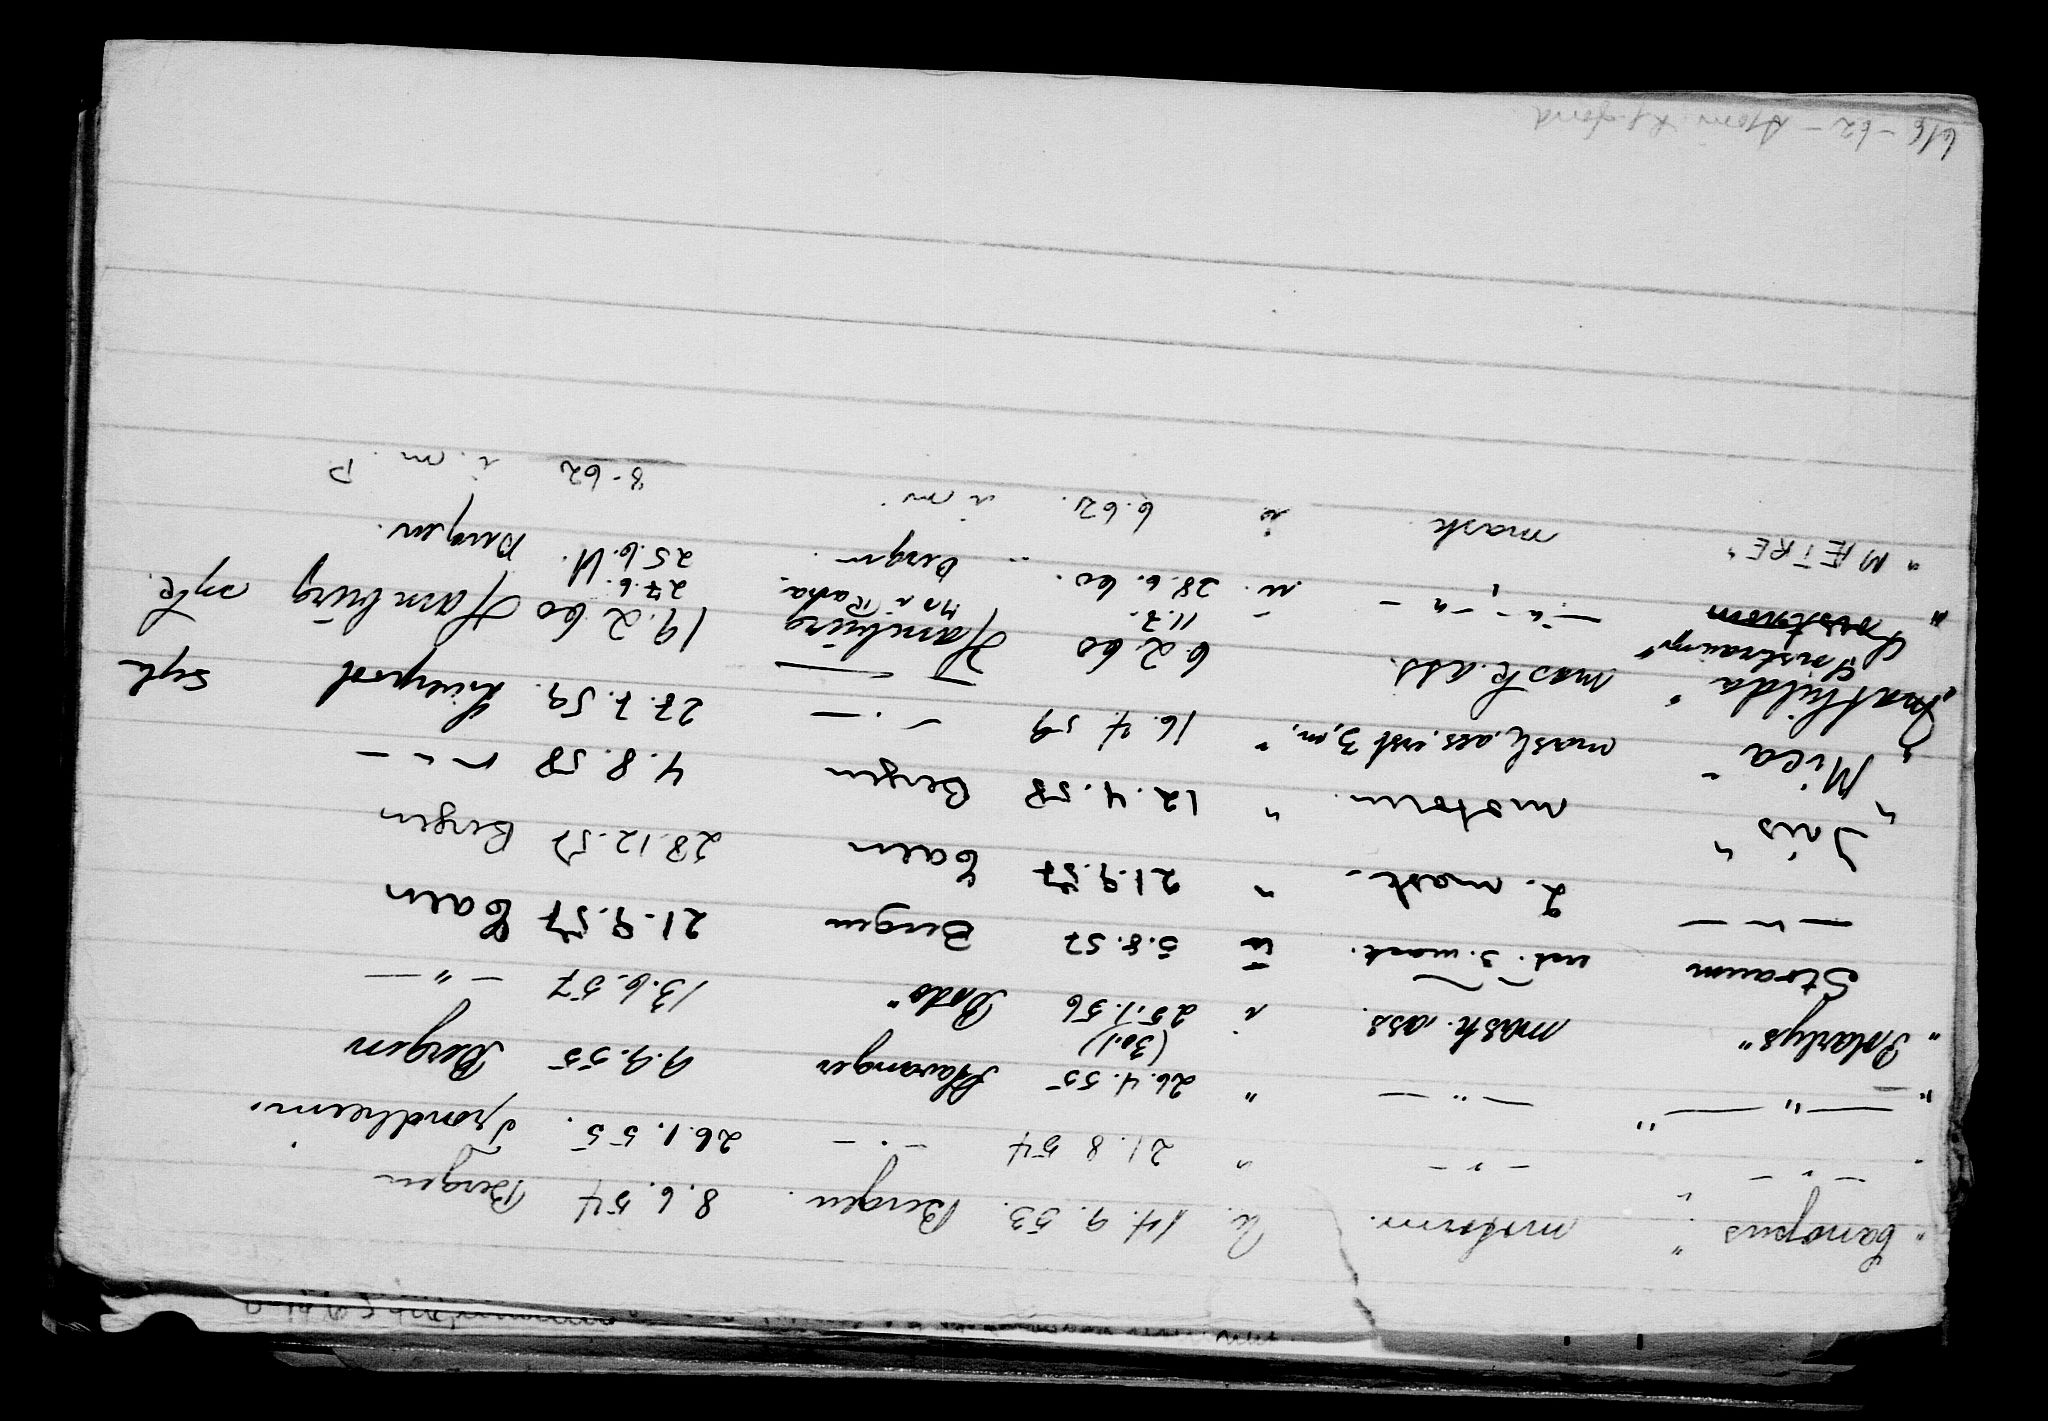 "Canopus" motorm. å. 14.9.53. Bergen. 8.6.54 Bergen
" — " — " — " — " 21.8.54 — " — 26.1.55. Trondheim.
" — " — " — " — " 26.4.55 Stavanger 9.9.55 Bergen
"Polarlys" mask. ass. i (30.1) 25.1.56 Bodø" 13.6.57 — " —
Straum vak. 3. mask. å 5.8.57 Bergen 21.9.57 Caen
— " — 2. mask. " 21.9.57 Caen 28.12.57 Bergen
"Iris" motorm. " 12.4.58 Bergen 4.8.58 — " —
"Mica" mask. ass. vak 3. m. " 16.4.59 — " — 27.7.59. Liverpool syk
"Mathilda" mask. ass. 6.2.60 Hamburg 19.2.60 Hamburg syk.
" Instraum" — " — " — 11.7. Mo i Rana 27.6.
u. 28.6.60. Bergen 25.6.61. Bergen.
"MÆTRE" mask. å 6.62. i.m. 8-62 i.m. P
6/6-62 -